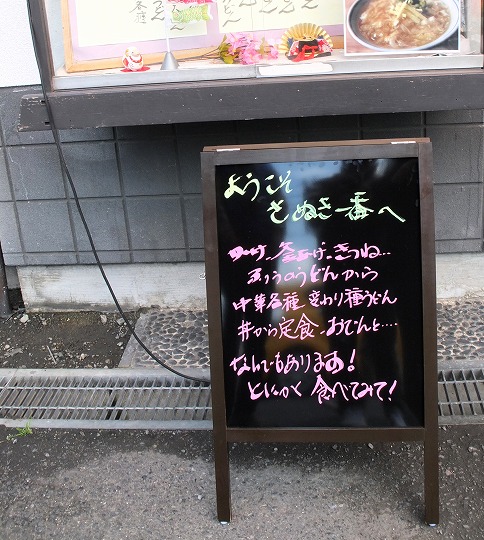 ようこそ
さぬき一番へ
ぶっかけ、釜あげ、きつね…
王りのうどんから
中華各種 変わり種うどん
丼から定食、おでんと‥‥
なんでもあります!
とにかく食べてみて!